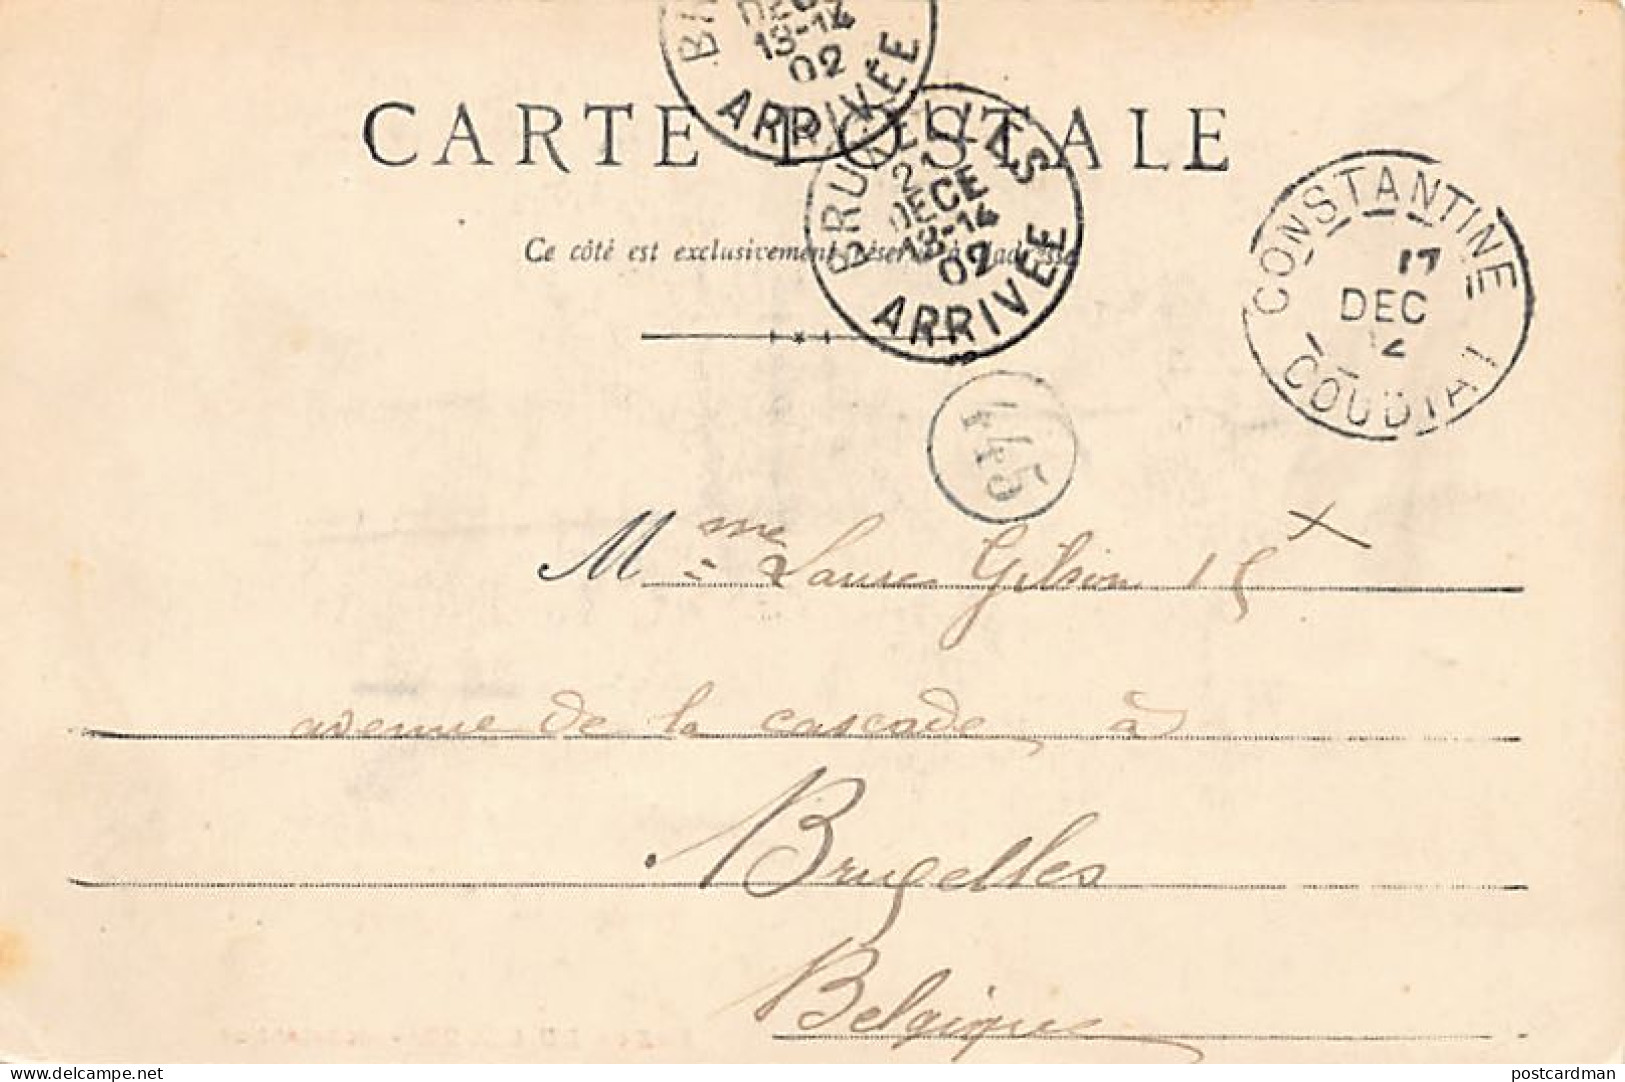 DECE
13-14
02
ARRIVÉE
CARTE POSTALE
BRUXELLES
21
DECE
13-14
02
ARRIVÉE
CONSTANTINE
17
DEC
COUDIAT
Ce côté est exclusivement réservé à l'adresse
145
Mme Laure Gilson 15
avenue de la cascade, à
Bruxelles
Belgique
delcampe.net
postcardman